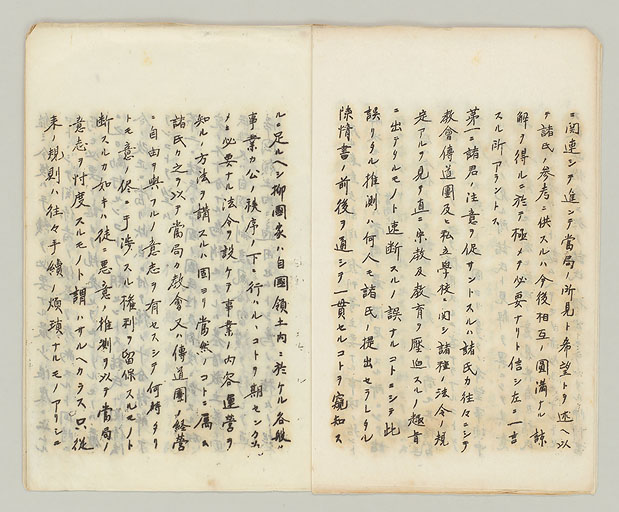 ニ関連シテ進ンテ當局ノ所見ト希望トヲ述ヘ以
テ諸氏ノ参考ニ供スルハ今後相互ノ圓満ナル諒
解ヲ得ルニ於テ極メテ必要ナリト信シ左ニ一言
スル所アラントス
第一ニ諸君ノ注意ヲ促サントスルハ諸氏カ往々ニシテ
教會傳道團及ヒ私立學校ニ関シ諸種ノ法令ノ規
定アルヲ見テ直ニ宗教及教育ヲ壓迫スルノ趣旨
ニ出テタルモノト速断スルノ誤ナルコトニシテ此
誤リタル推測ハ何人モ諸氏ノ提出セラレタル
陳情書ノ前後ヲ通シテ一貫セルコトヲ窺知ス
ルニ足ルヘシ抑國家ハ自國領土内ニ於ケル各般ノ
事業カ公ノ秩序ノ下ニ行ハルヽコトヲ期センカ
メニ必要ナル法令ヲ設ケテ事業ノ内容運營ヲ
知ルノ方法ヲ講スルハ固ヨリ當然ノコトニ属ス
諸氏カ之ヲ以テ當局カ教會又ハ傳道團ノ経營
ニ自由ヲ與フルノ意志ヲ有セスシテ何時タリ
トモ意ノ侭ニ干渉スル権利ヲ留保スルモノト
断スルカ如キハ徒ニ悪意ノ推測ヲ以テ當局ノ
意志ヲ忖度スルモノト謂ハサルヘカラス只従
来ノ規則ハ往々手續ノ煩瑣ナルモノアリシニ